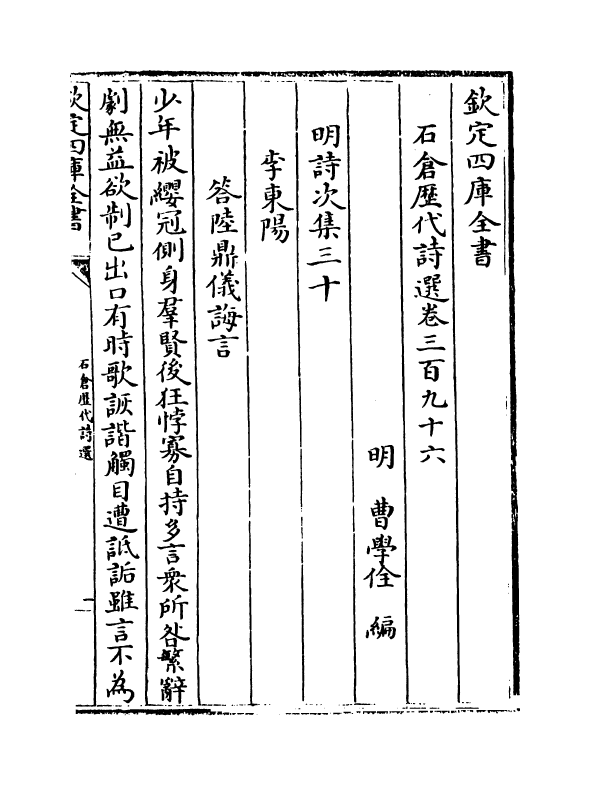 欽定四庫全書
石倉歷代詩選卷三百九十六
明 曹學佺 編
明詩次集三十
李東陽
答陸鼎儀誨言
少年被纓冠側身羣賢後狂悖寡自持多言衆所咎繁辭
劇無益欲制已出口有時歌詼諧觸目遭詆詬雖言不為
欽定四庫全書
石倉歷代詩選
一